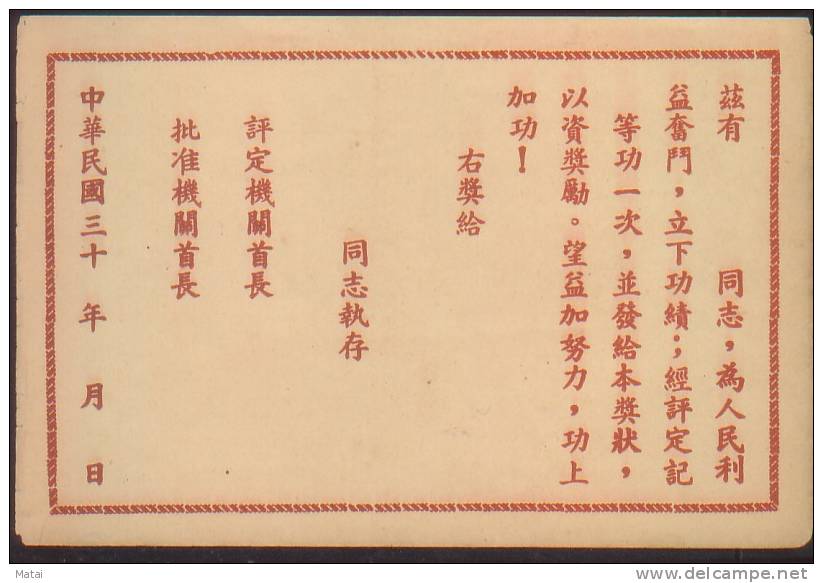 茲有　　　同志，為人民利
益奮鬥，立下功績；經評定記
等功一次，並發給本獎狀，
以資獎勵。望益加努力，功上
加功！
右獎給
同志執存
評定機關首長
批准機關首長
中華民國三十　年　月　日
Matai
delcampe.net